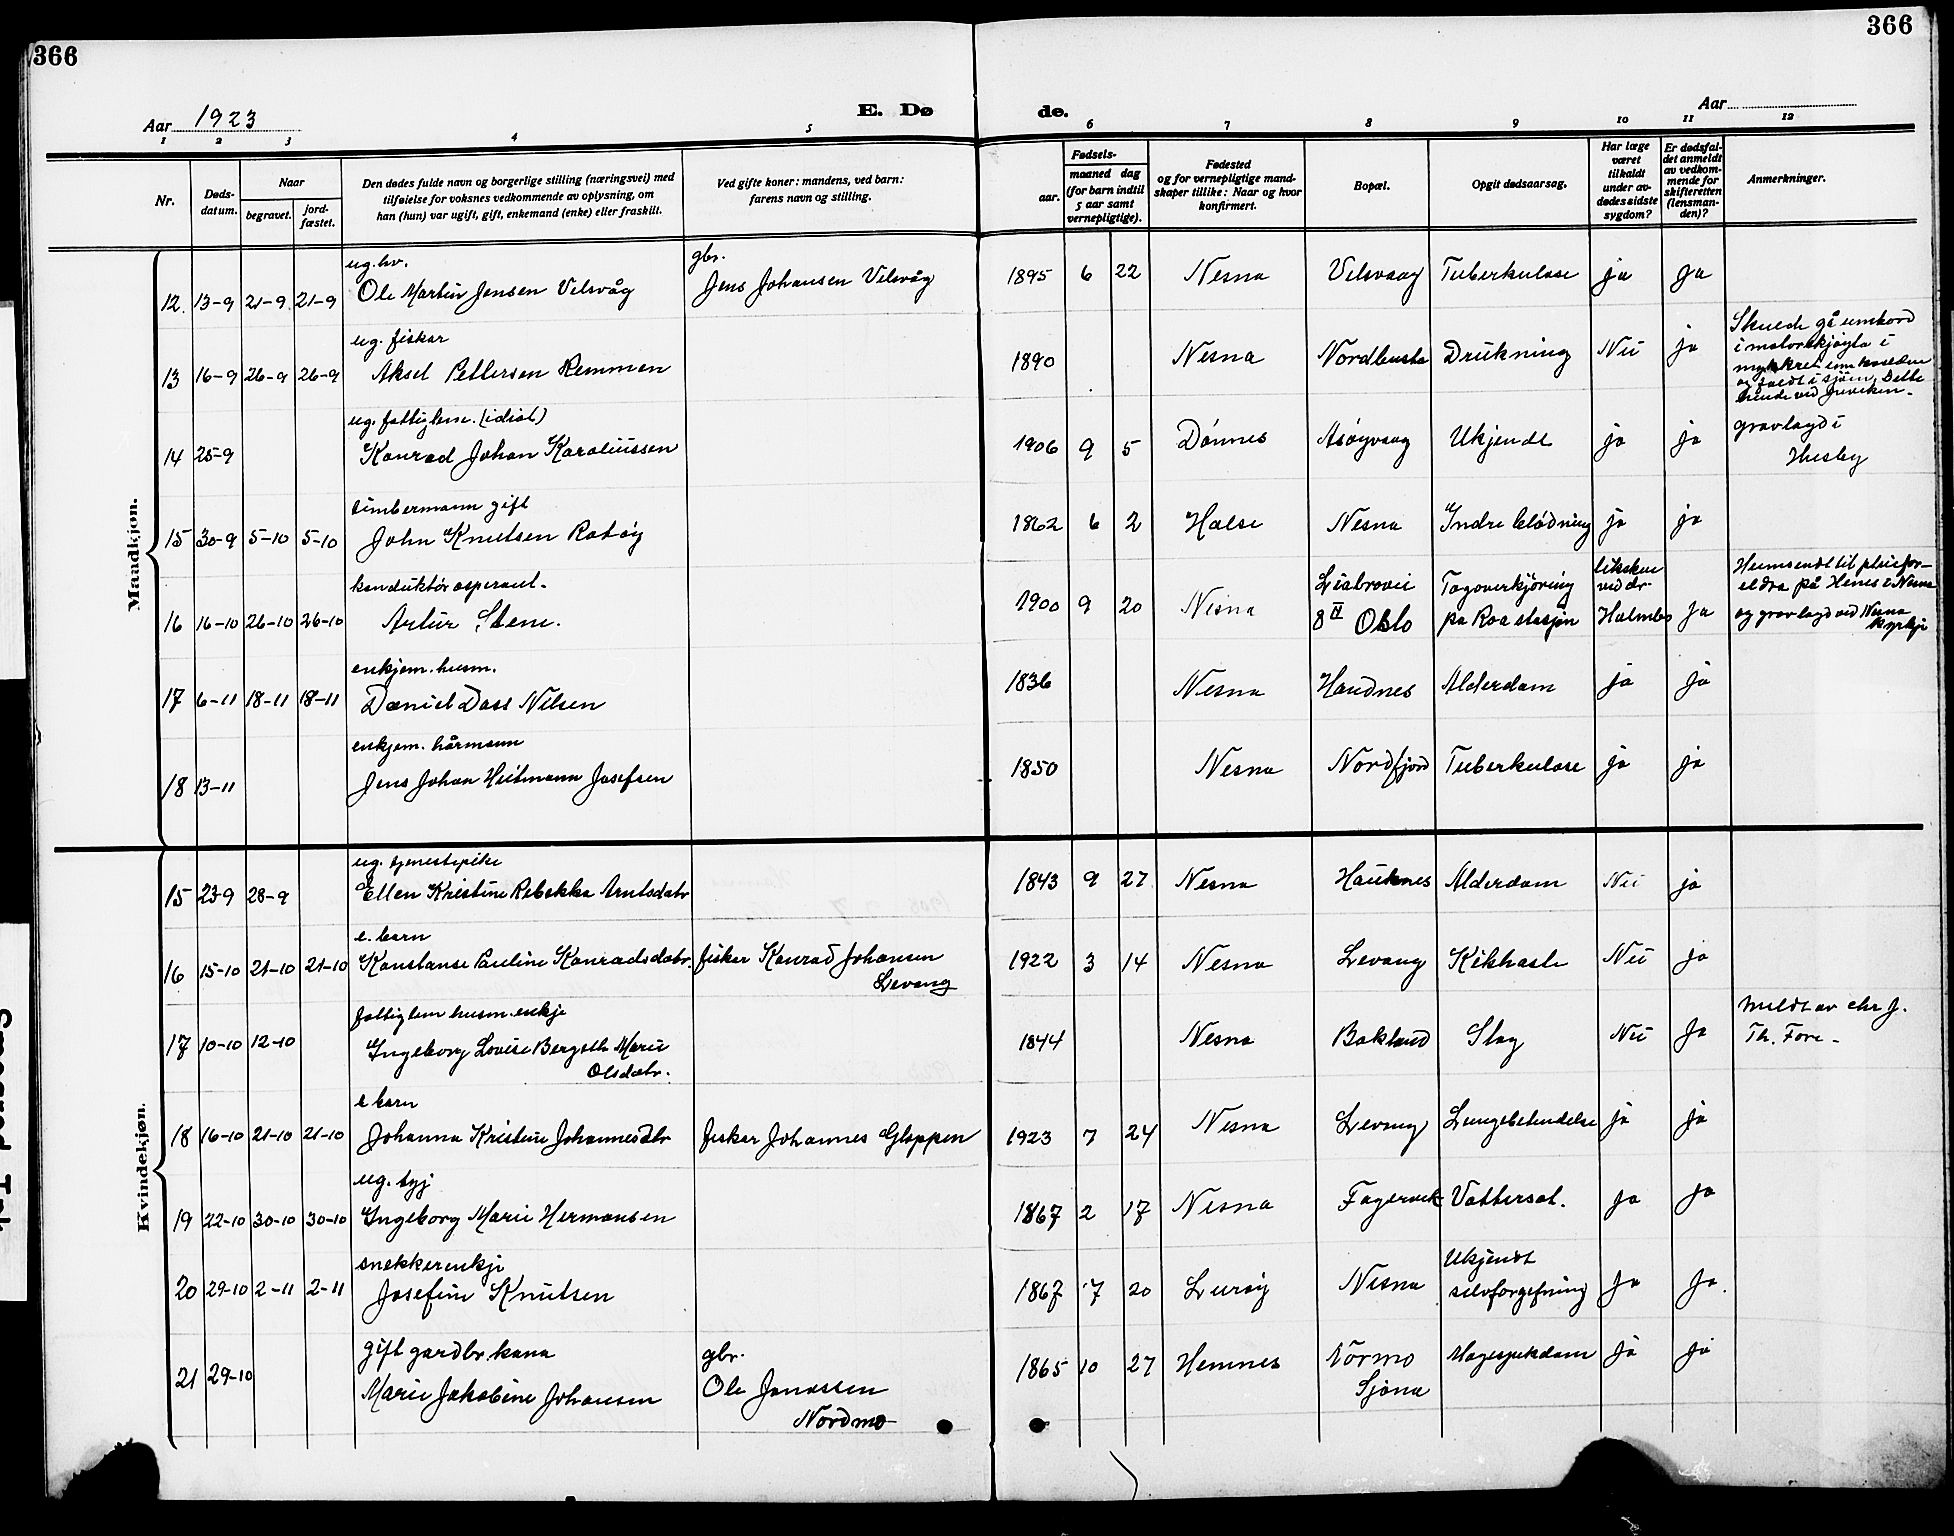 366
366
Aar 1923
E. Dø
de.
Aar
1 2 3 4 5 6 7 8 9 10 11 12
Nr.
Døds-
datum.
Naar
begravet.
jord-
fæstet.
Den dødes fulde navn og borgerlige stilling (næringsvei) med
tilføielse for voksnes vedkommende av oplysning, om
han (hun) var ugift, gift, enkemand (enke) eller fraskilt.
Ved gifte koner: mandens, ved barn:
farens navn og stilling.
Fødsels-
aar.
maaned dag
(for barn indtil
5 aar samt
vernepligtige).
Fødested
og for vernepligtige mand-
skaper tillike: Naar og hvor
konfirmert.
Bopæl.
Opgit dødsaarsag.
Har læge
været
tilkaldt
under av-
dødes sidste
sygdom?
Er dødsfal-
det anmeldt
av vedkom-
mende for
skifteretten
(lensman-
den)?
Anmerkninger.
Mandkjøn.
ug. hv. gbr.
12. 13-9 21-9 21-9 Ole Martin Jensen Velsvåg Jens Johansen Velsvåg 1895 6 22 Nesna Velsvaag Tuberkulose ja ja
ug. fisker
13 16-9 26-9 26-9 Aksel Pettersen Remmen 1890 Nesna Drukning Nei ja
Skulde gå umbord
i motorskjøyta i
ug. fattiglem. (idiot)
14 25-9 Konrad Johan Karoliussen 1906 9 5 Dønnes Ukjendt ja ja gravlagd i
Husby
timbermann gift
15 30-9 5-10 5-10 John Knutsen Rotøy 1862 6 2 Halse Nesna Indre blødning ja ja
konduktøraspirant.
16 16-10 26-10 26-10 Artur Stene. 1900 9 20 Nesna
8 IV Oslo
Togoverkjøring
pa Roa stasjon
likskue
ved dr.
Holmbo ja
Heimsendt til pleiefor-
eldra på Nesna
og gravlagd ved Nesna
kyrkje
enkjem. husm.
17 6-11 18-11 18-11 Daniel Dass Nilsen 1836 Nesna Handnes Alderdom ja ja
enkjem. kårmann
18 13-11 Jens Johan Heitmann Josefsen 1850 Nesna Nordfjord Tuberkulose ja ja
Kvindekjøn.
ug. tjenestepike
15 23-9 28-9 Ellen Kristine Rebekka Arntsdatr 1843 9 27 Nesna Hauknes Alderdom Nei ja
e. barn
16 15-10 21-10 21-10 Konstanse Pauline Konradsdatr. fisker Konrad Johansen
Levang
1922 3 14 Nesna Levang Kikhoste Nei ja
fattiglem husm.enkje
17 10-10 12-10 Ingeborg Lovise Bergith Marie
Olsdatr.
1844 Nesna Bakland Slag Nei ja
meldt av chr J.
Th. Fore -
e barn
18 16-10 21-10 21-10 Johanna Kristine Johannesdtr fisker Johannes Gloppen 1923 7 24 Nesna Levang Lungebetendelse ja ja
ug. tyj
19 22-10 30-10 30-10 Ingeborg Marie Hermansen 1867 2 17 Nesna Fagervik Vattersot. ja ja
snekkerenkje
20 29-10 2-11 2-11 Josefine Knutsen 1867 7 20 Lurøy Nesna
Ukjendt
selvforgiftning ja ja.
gift gardbr. kona gbr.
21 29-10 Marie Jakobine Johansen Ole Jonassen
Nordmo
1865 10 27 Hemnes
Sjona
Magesjukdom ja ja